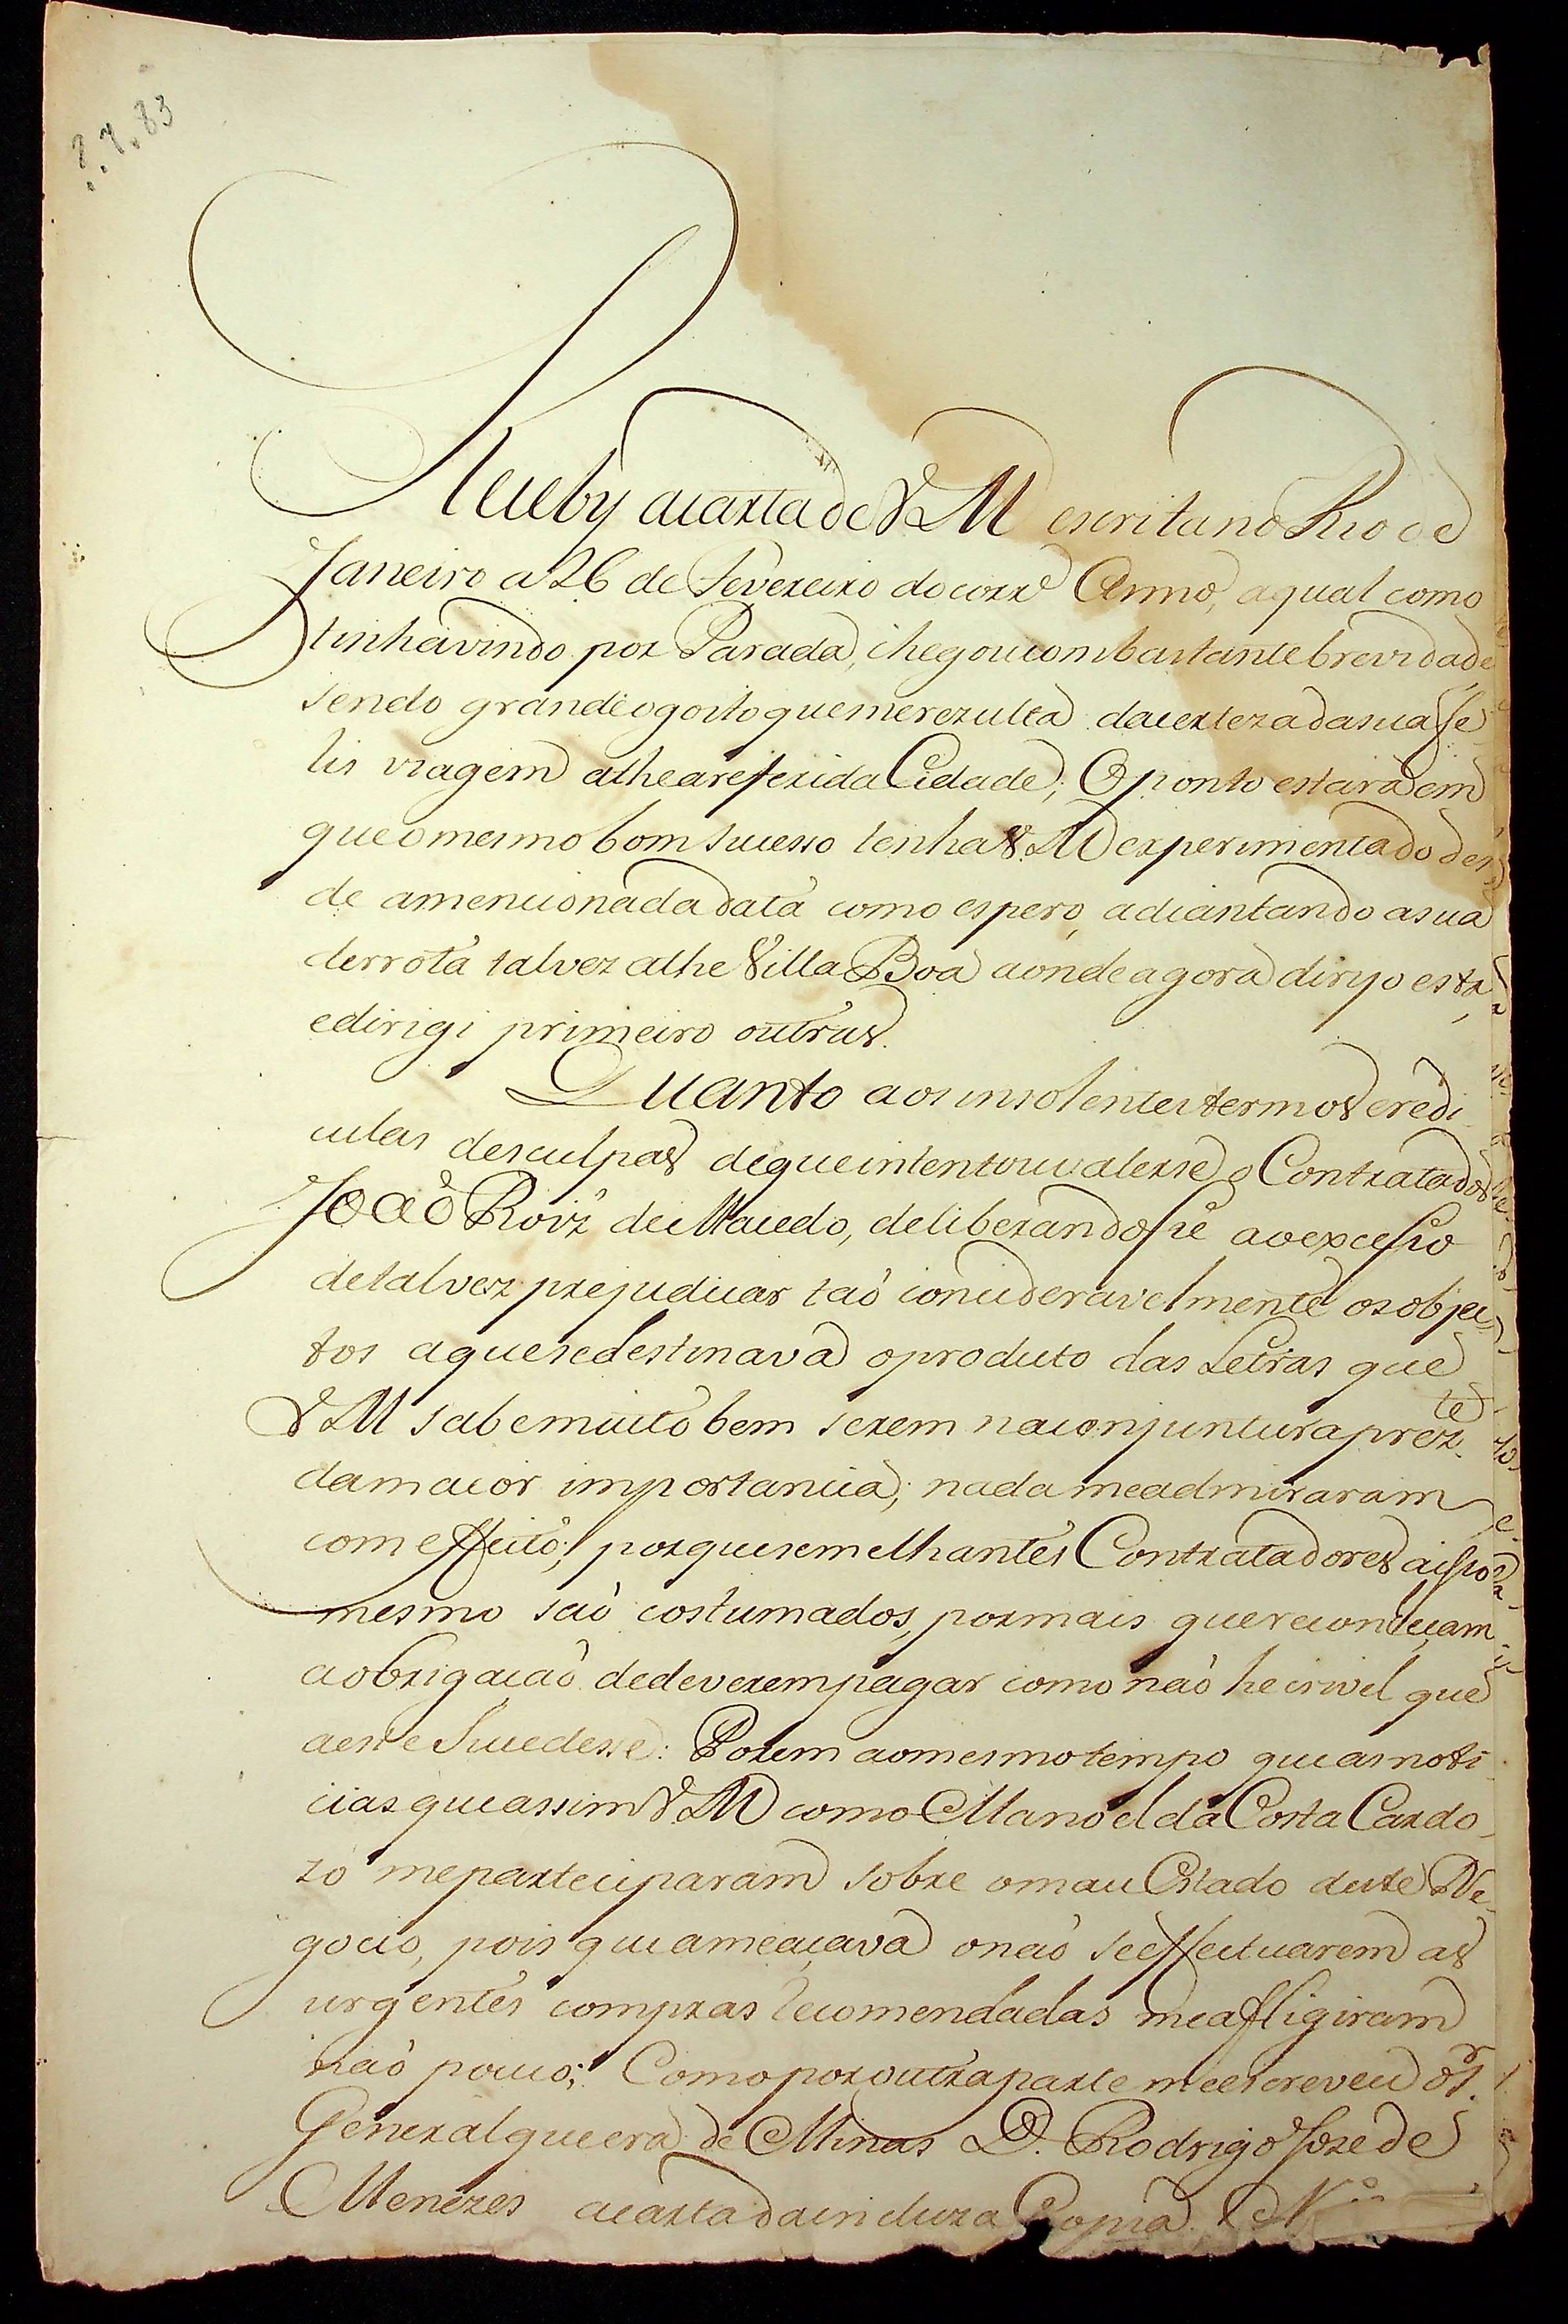 ?.7.83
Receby a carta de V M escrita no Rio de
Janeiro a 26 de Fevereiro do corr.e Anno, a qual como
tinha vindo por Parada, chegou com bastante brevidade
sendo grande o gosto que me rezulta da certeza da sua fe
lis viagem athe a referida Cidade; O ponto estará em
que o mesmo bom sucesso tenha V. M experimentado des
de a mencionada data como espero, adiantando a sua
derrota talvez athe Villa Boa aonde agora dirijo esta,
e dirigi primeiro outras.
Quanto aos insolentes termos e redi
culas desculpas de que intentou valerse o Contratador
Joaõ Roiz' de Macedo, deliberandosse ao excesso
de talvez prejudicar taõ consideravelmente os objec
tos a que se destinava o producto das Letras que
V M sabe muito bem serem na conjuntura prez.te
da maior importancia; nada me admiraram
com effeito; porque semelhantes Contratadores a isso
mesmo saõ costumados, por mais que reconheçam
a obrigaçaõ de deverem pagar como naõ he crivel que
a este Sucedesse: Porem ao mesmo tempo que as noti
cias que assim V M como Manoel da Costa Cardo
zo me parteciparam sobre o mau Estado deste Ne
gocio, pois que ameaçava o naõ se effectuarem as
urgentes compras recomendadas me afligiram
naõ pouco; Como por outra parte me escreveu o S.r
General que era de Minas D. Rodrigo Joze de
Menezes a carta da incluza Copia N.o